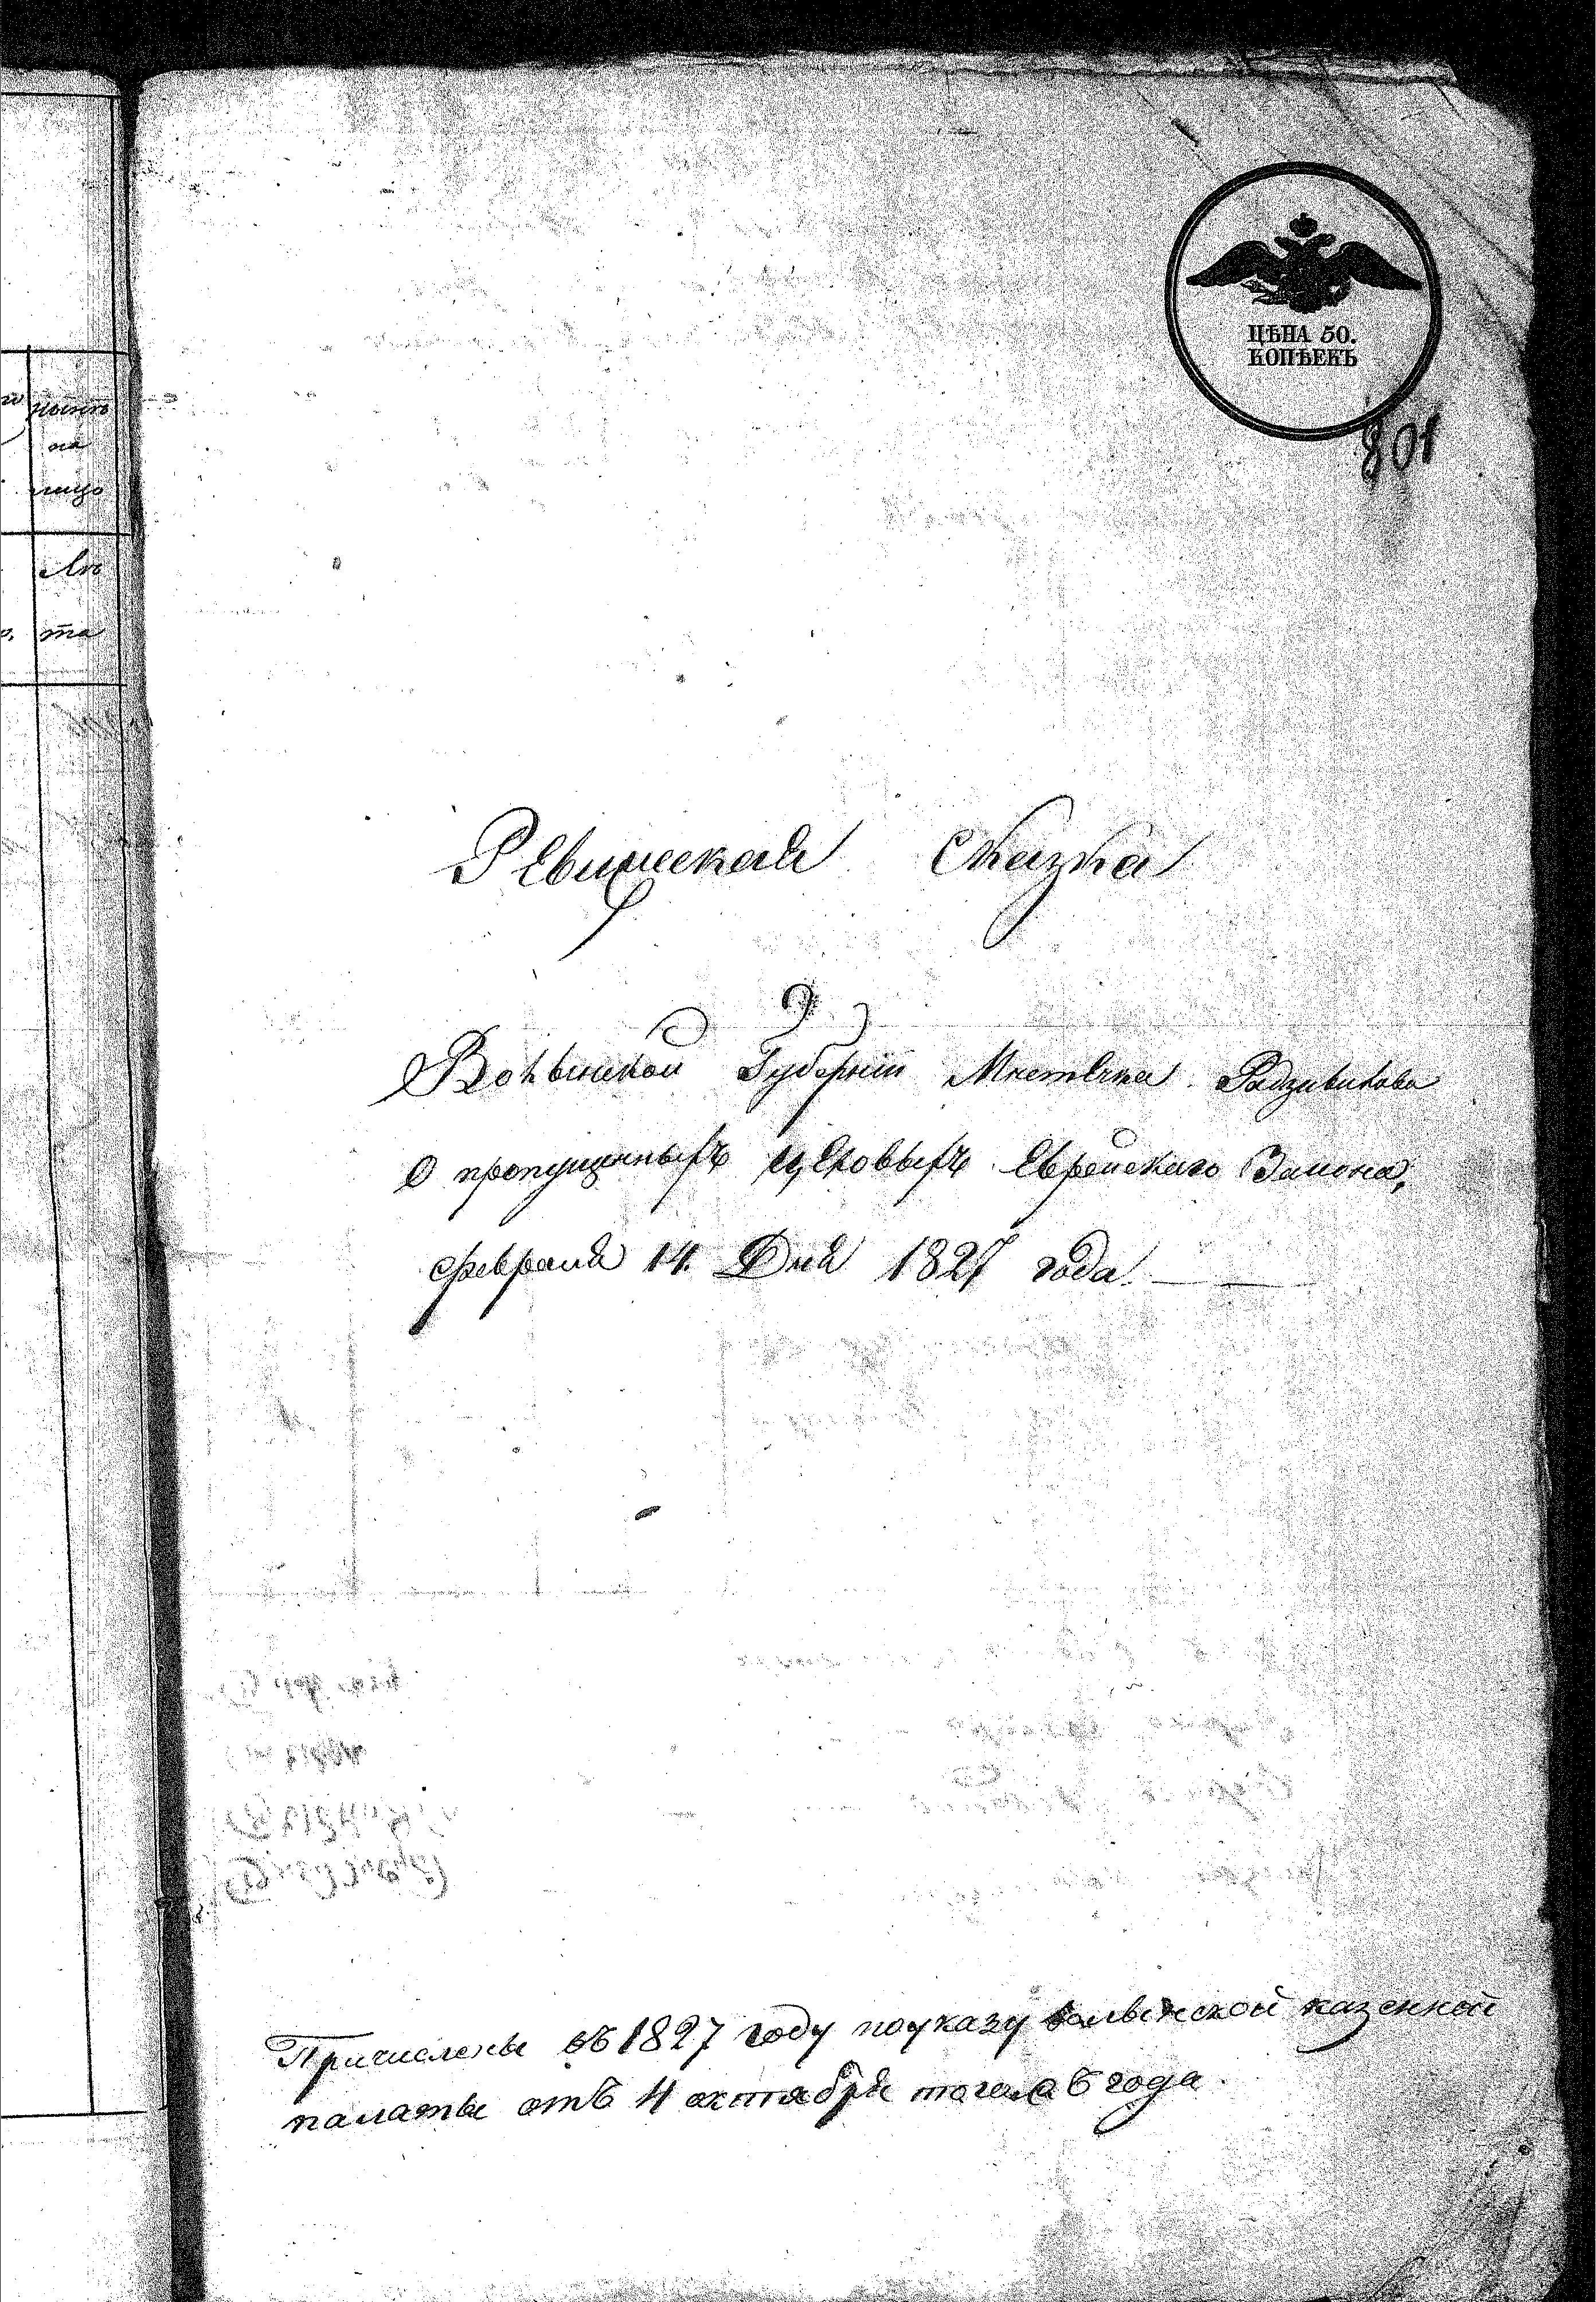 ЦѢНА 50.
КОПѢЕКЪ
801
нынѣ
на
лицо
Лѣ
та
Ревижская Сказка
Волынской Губерніи Мистечка Радзивилова
О пропущенныхъ цеховыхъ Еврейскаго Закона,
февраля 14. Дня 1827 года.
Причислены въ 1827 году по указу волынской казенной
палаты отъ 4 октября того жъ года.